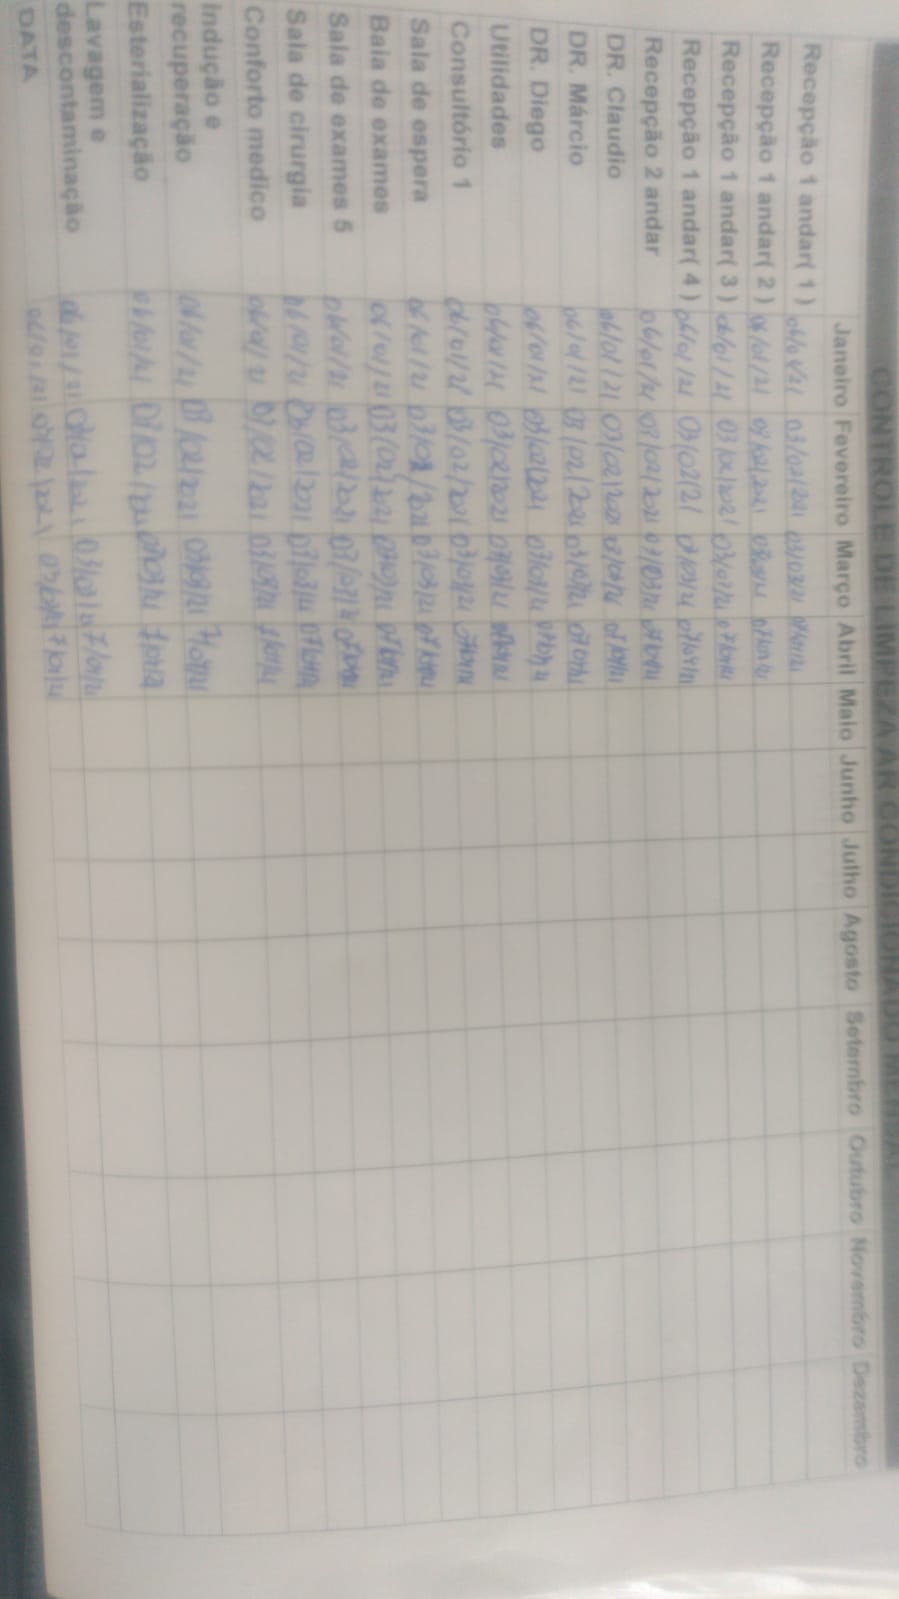 CONTROLE DE LIMPEZA AR CONDICIONADO MENSAL
Janeiro Fevereiro Março Abril Maio Junho Julho Agosto Setembro Outubro Novembro Dezembro
Recepção 1 andar( 1 ) 06/01/21 03/02/2021 03/03/21
Recepção 1 andar( 2 ) 06/01/21 03/02/2021
Recepção 1 andar( 3 ) 06/01/21 03/02/2021 03/03/21 07/04/21
Recepção 1 andar( 4 ) 06/01/21 03/02/21 03/03/21 07/04/21
Recepção 2 andar 06/01/21 03/02/2021 03/03/21
DR. Claudio 06/01/21 03/02/2021 07/04/21
DR. Márcio 06/01/21 03/02/2021 03/03/21
DR. Diego 06/01/21 03/02/2021 03/03/21
Utilidades 06/01/21 03/02/2021 03/03/21
Consultório 1 06/01/21 03/02/2021 03/03/21
Sala de espera 06/01/21 03/02/2021 03/03/21
Baia de exames 06/01/21 03/02/2021
Sala de exames 5 06/01/21 03/02/2021 03/03/21
Sala de cirurgia 06/01/21 03/02/2021 03/03/21 07/04/21
Conforto medico 06/01/21 03/02/2021 03/03/21
Indução e
recuperação 06/01/21 03/02/2021 03/03/21 7/04/21
Esterialização 06/01/21
Lavagem e
descontaminação 06/01/21 03/02/2021 03/03/21 7/04/21
DATA 06/01/21 03/02/2021 7/04/21